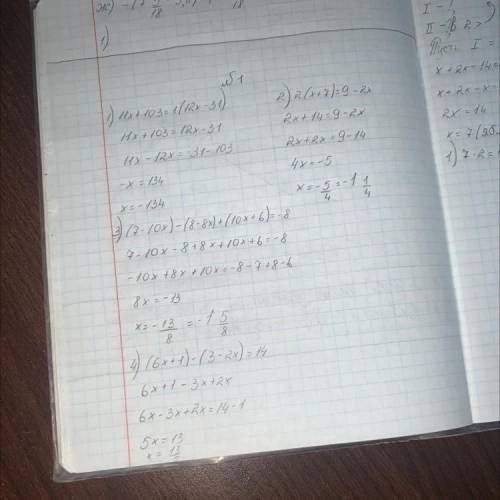 1)
№1
1) 11x+103=1(12x-31)
11x+103=12x-31
11x-12x=-31-103
-x=134
x=-134
2) 2(x+7)=9-2x
2x+14=9-2x
2x+2x=9-14
4x=-5
x=-5/4=-1 1/4
3) (7-10x)-(8-8x)+(10x+6)=-8
7-10x-8+8x+10x+6=-8
-10x+8x+10x=-8-7+8-6
8x=-13
x=-13/8=-1 5/8
4) (6x+1)-(3-2x)=14
6x+1-3x+2x
6x-3x+2x=14-1
5x=13
x=13/5
I -
II -
I =
x+2x=14
x+2x-x-
2x=14
x=7
1) 7·2=1